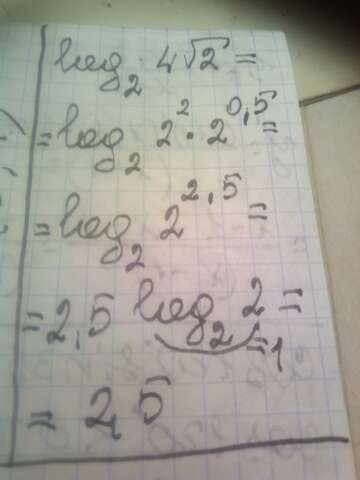 log₂ 4√2 =
= log₂ 2² · 2^0,5 =
= log₂ 2^2,5 =
= 2,5 log₂ 2 =
= 1
= 25